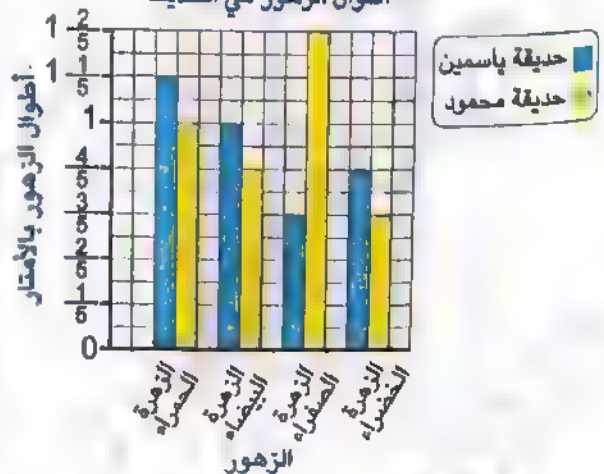 أطوال الزهور في الحديقة
حديقة ياسمين
حديقة محمود
أطوال الزهور بالأمتار
1 2/5
1 1/5
1
4/5
3/5
2/5
1/5
0
الزهرة الحمراء
الزهرة البيضاء
الزهرة الصفراء
الزهرة الخضراء
الزهور